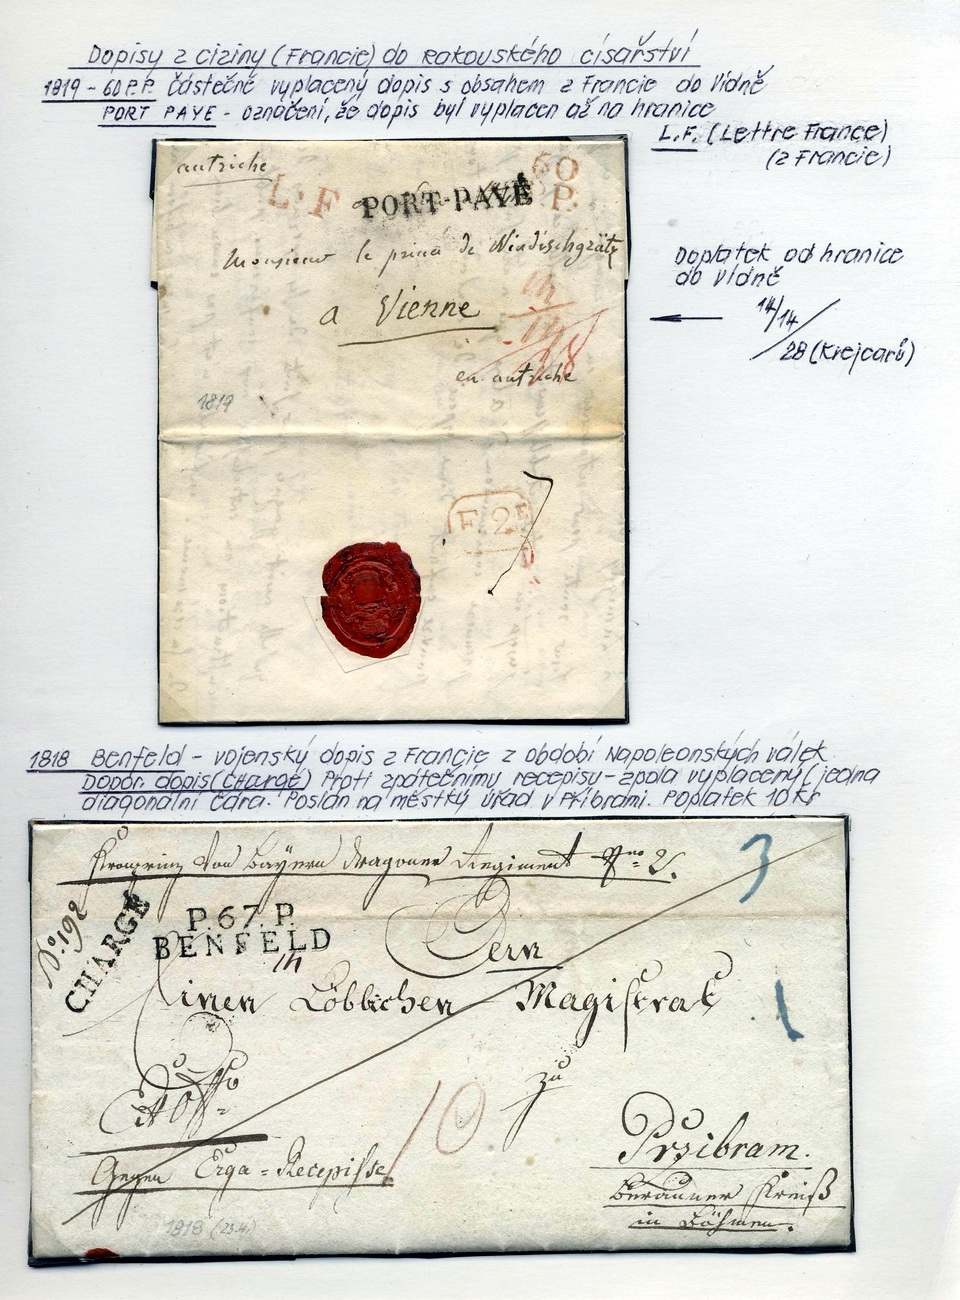 Dopisy z ciziny (Francie) do rakouského císařství
1819 - 60 P.P. částečně vyplacený dopis s obsahem z Francie do Vídně
PORT PAYE - označení, že dopis byl vyplacen až na hranice
L.F. (Lettre France)
(z Francie)
autriche
L. F
PORT-PAYÉ
60
P.
Monsieur le prince de Windischgrätz
a Vienne
en autriche
14
14
28
Doplatek od hranice
do Vídně
14/14
28 (Krejcarů)
1819
F 2 E
1818 Benfeld - vojenský dopis z Francie z období Napoleonských válek.
Dopor. dopis (Chargé) Proti zpátečnímu recepisu - zpola vyplacený (jedna
diagonální čára. Poslán na městký úřad v Příbrami. Poplatek 10 Kr
Kronprinz von Bayern Dragoner Regiment No 2.
3
No. 192
CHARGÉ
P. 67. P.
BENFELD
14
Dem
Einen Löblichen Magistrat
1
zu
10
Przibram.
Gegen Exga = Recepisse
Berauner Kreiß
in Böhmen.
1818 (23.4.)